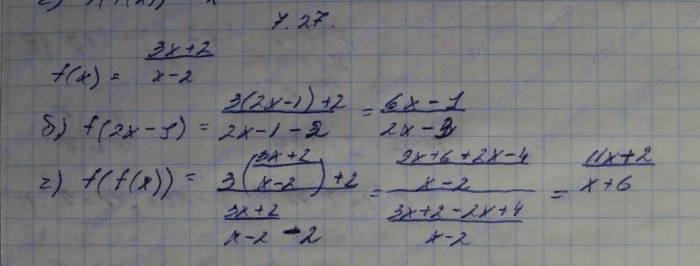 7.27.
f(x) = (3x+2)/(x-2)
б) f(2x-1) = (3(2x-1)+2)/(2x-1-2) = (6x-1)/(2x-3)
г) f(f(x)) = (3((3x+2)/(x-2))+2)/((3x+2)/(x-2) -2) = ((9x+6+2x-4)/(x-2))/((3x+2-2x+4)/(x-2)) = (11x+2)/(x+6)